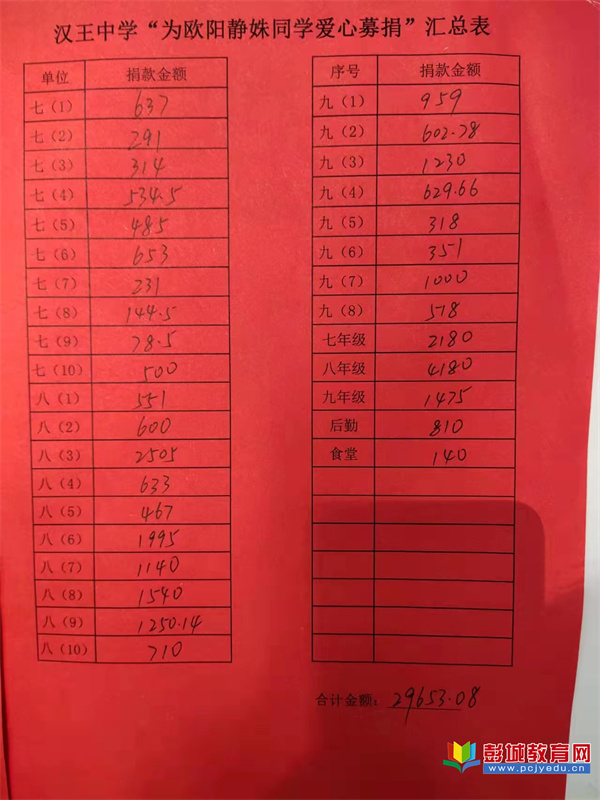 汉王中学“为欧阳静姝同学爱心募捐”汇总表
单位 捐款金额
七（1） 637
七（2） 291
七（3） 314
七（4） 534.5
七（5） 485
七（6） 653
七（7） 231
七（8） 144.5
七（9） 78.5
七（10） 500
八（1） 551
八（2） 600
八（3） 2505
八（4） 633
八（5） 467
八（6） 1995
八（7） 1140
八（8） 1540
八（9） 1250.14
八（10） 710
序号 捐款金额
九（1） 959
九（2） 602.78
九（3） 1230
九（4） 629.66
九（5） 318
九（6） 351
九（7） 1000
九（8） 518
七年级 2180
八年级 4180
九年级 1475
后勤 810
食堂 140
合计金额：29653.08
彭城教育网
www.pcjyedu.cn